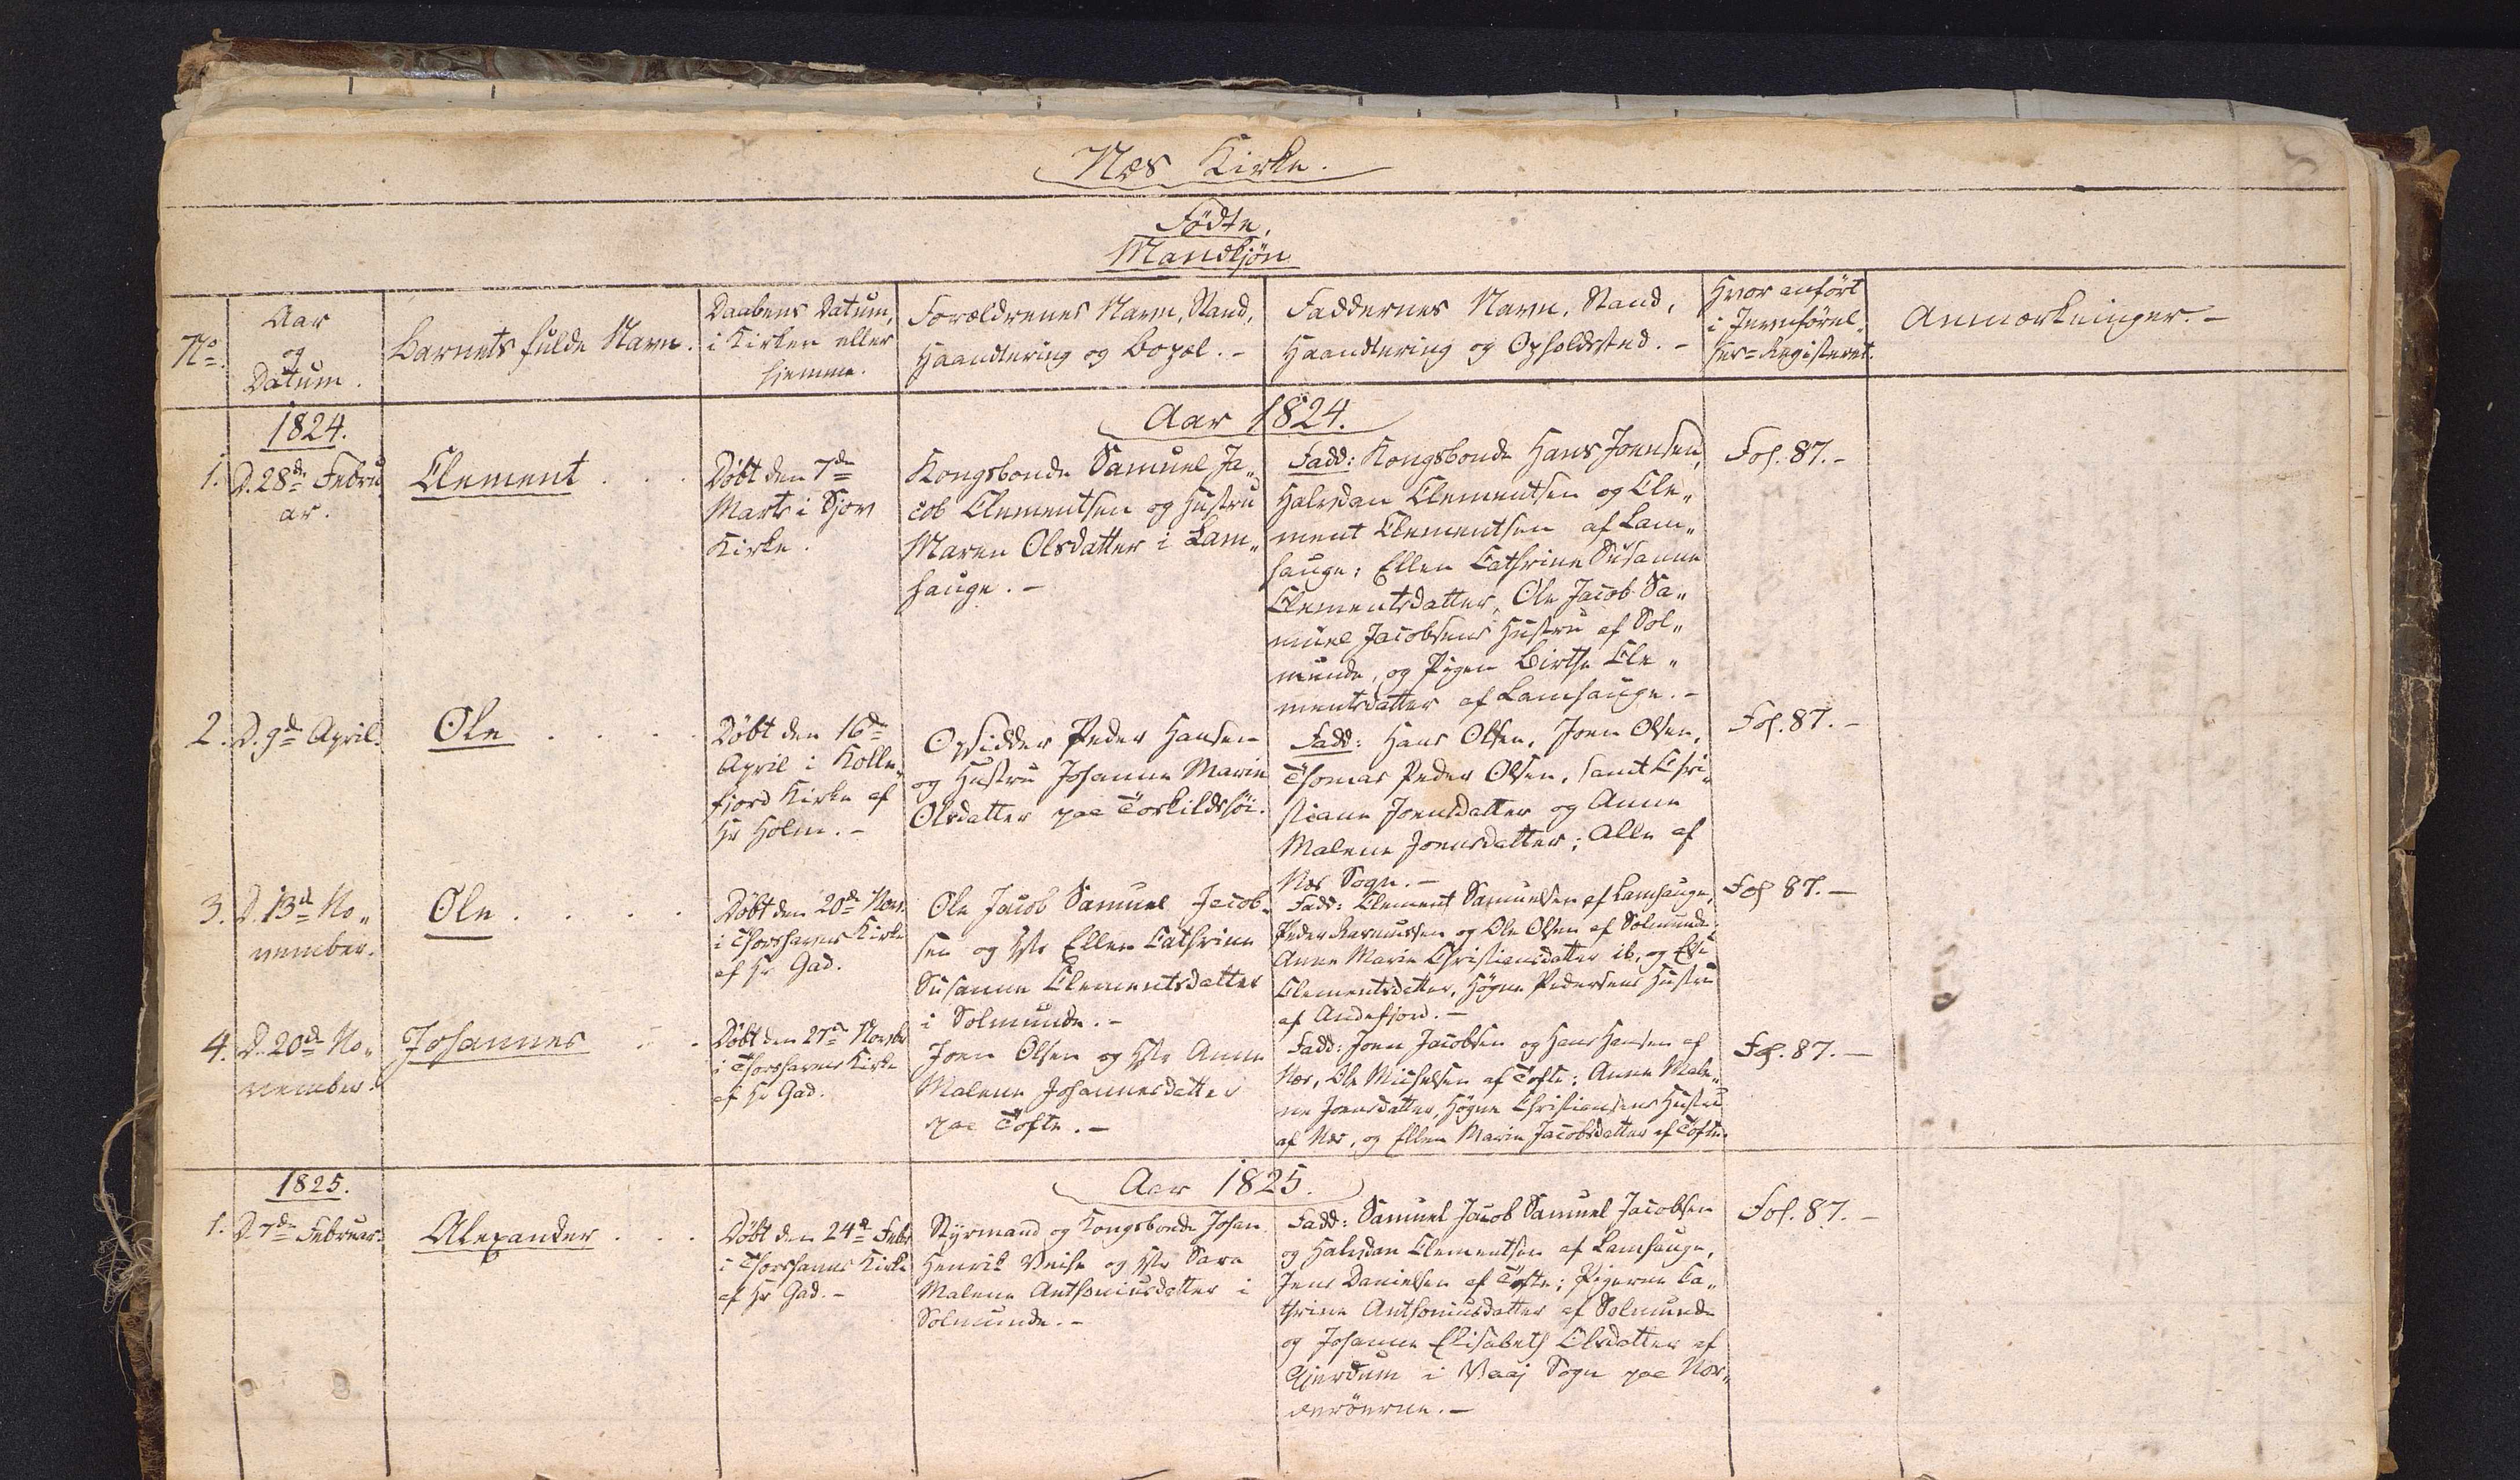 Næs Kirke.
Födte.
Mandkjön
No.
Aar
og
Datum.
Barnets fulde Navn.
Daabens Datum,
i Kirken eller
hjemme.
Forældrenes Navn, Stand,
Haandtering og Bopæl. -
Faddernes Navn, Stand,
Haandtering og Opholdsted. -
Hvor anfört
i Jevnförel„
ses-Registeret.
Anmærkninger. -
1824.
Aar 1824.
1.
D. 28de Febru„
ar.
Clement . . .
Döbt den 7de
Marts i
Kirke.
Kongsbonde Samuel Ja„
cob Clementsen og Hustru
Maren Olsdatter i Lam„
hauge. -
Fadd: Kongsbonde Hans Joensen,
Halvdan Clementsen og Cle„
ment Clementsen af Lam„
hauge; Ellen Cathrine Susanne
Clementsdatter, Ole Jacob Sa„
muel Jacobsens Hustru af Sol„
munde, og Pigen Birthe Cle„
mentsdatter af Lamhauge. -
Fol. 87. -
2.
D. 9de April.
Ole . . . .
Döbt den 16de
April i Kolle„
fjord Kirke af
Hr Holm. -
Opsidder Peder Hansen
og Hustru Johanne Marie
Olsdatter paa Torkildshöi.
Fadd: Hans Olsen, Joen Olsen,
Thomas Peder Olsen, samt Chri„
stiane Joensdatter og Anne
Malene Joensdatter; Alle af
Næs Sogn. -
Fol. 87. -
3.
D. 13de No„
vember.
Ole . . . .
Döbt den 20de Novr.
i Thorshavns Kirke
af Hr Gad.
Ole Jacob Samuel Jacob„
sen og Hstr Ellen Cathrine
Susanne Clementsdatter
i Solmunde. -
Fadd: Clement Samuelsen af Lamhauge,
Peder Rasmussen og Ole Olsen af Solmunde;
Anne Marie Christiansdatter ib. og Else
Clementsdatter, Högne Pedersens Hustru
af Andefjord. -
Fol. 87. -
4.
D. 20de No„
vember.
Johannes . . .
Döbt den 27de Novbr
i Thorshavns Kirke
af Hr Gad.
Joen Olsen og Hstr Anne
Malene Johannesdatter
paa Tofte. -
Fadd: Joen Jacobsen og Hans Hansen af
Næs, Ole Michelsen af Tofte; Anne Male„
ne Joensdatter, Högne Christiansens Hustru
af Næs, og Ellen Marie Jacobsdatter af Tofte.
Fol. 87. -
1825.
Aar 1825.
1.
D. 7de Februar.
Alexander . . .
Döbt den 24de Febr.
i Thorshavns Kirke
af Hr Gad. -
Styrmand og Kongsbonde Johan
Henrik Weihe og Hstr Sara
Malene Anthoniusdatter i
Solmunde. -
Fadd: Samuel Jacob Samuel Jacobsen
og Halvdan Clementsen af Lamhauge,
Jens Danielsen af Tofte; Pigerne Ca„
thrine Anthoniusdatter af Solmunde
og Johanne Elisabeth Olsdatter af
Gjerdum i Waaj Sogn paa Nor„
deröerne. -
Fol. 87. -